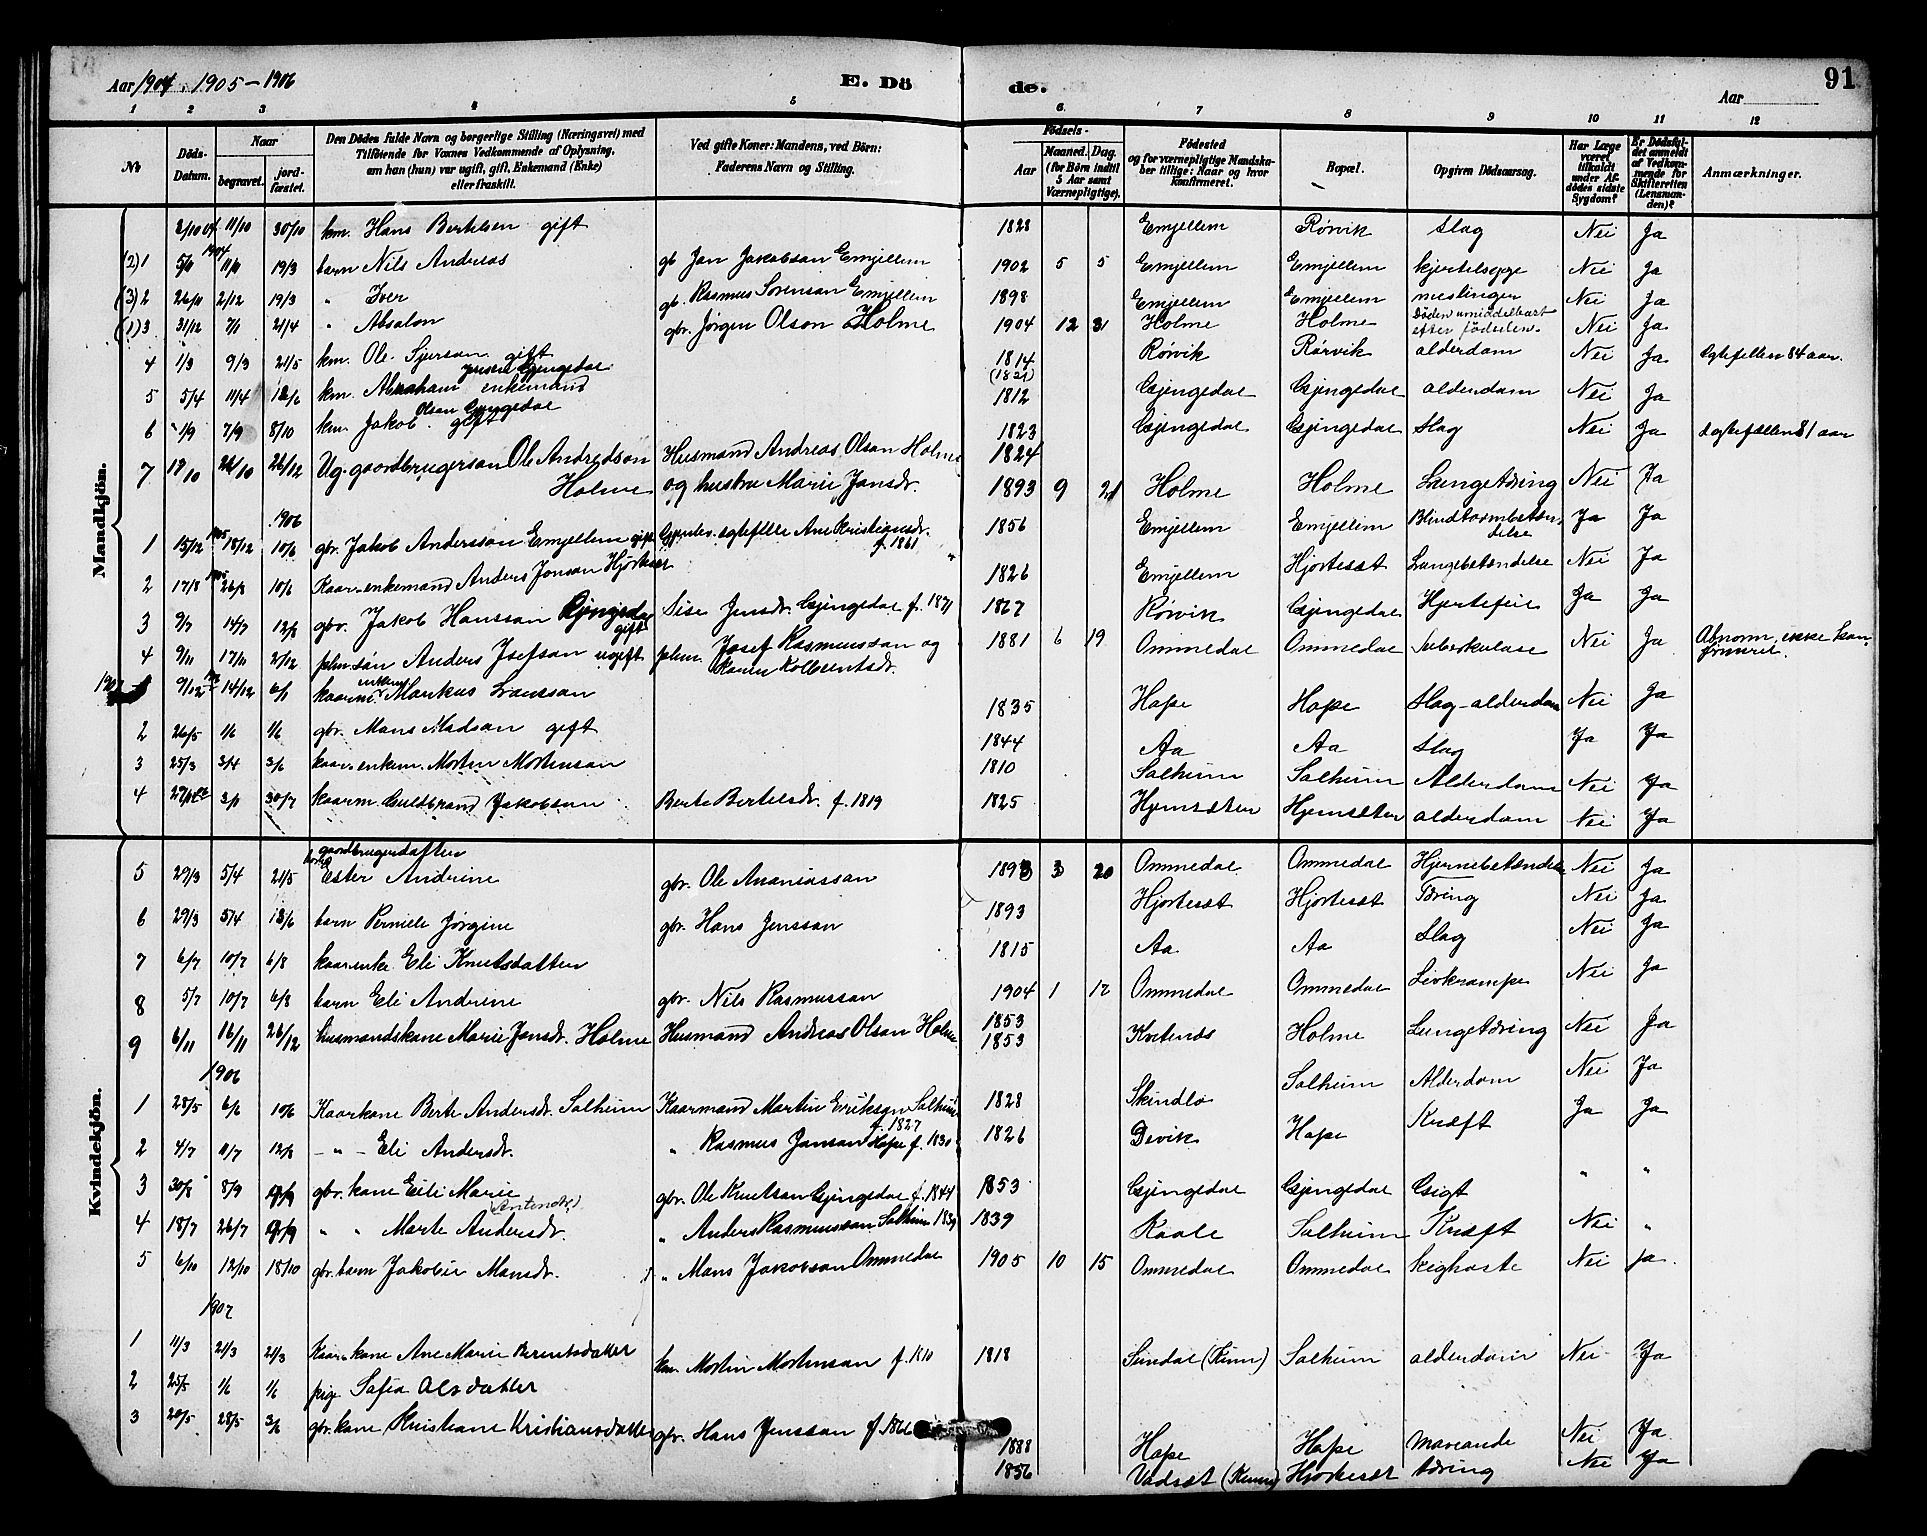 Aar 1904, 1905 - 1906 E. Dö de. Aar 91
1 2 3 4 5 6 7 8 9 10 11 12
No Döds-Datum. Naar begravet. jordfæstet. Den Dödes fulde Navn og borgerlige Stilling (Næringsvei) med Tilföiende for Voxnes Vedkommende af Oplysning, om han (hun) var ugift, gift, Enkemand (Enke) eller fraskilt. Ved gifte Koner: Mandens, ved Börn: Faderens Navn og Stilling. Födsels- Aar Maaned. Dag. (for Börn indtil 5 Aar samt Værnepligtige). Födested og for værnepligtige Mandskaber tillige: Naar og hvor konfirmeret. Bopæl. Opgiven Dödsaarsag. Har Læge været tilkaldt under Afdödes sidste Sygdom? Er Dödsfaldet anmeldt af Vedkommende for Skifteretten (Lensmanden)? Anmærkninger.
Mandkjön.
2/10 04 11/10 30/10 km. Hans Bertelsen gift 1828 Emjellem Rørvik Slag Nei Ja
(2) 1 5/11 1904 11/11 19/3 barn Nils Andreas gb Jon Jakobson Emjellem 1902 5 5 Emjellem Emjellem kjertelsyge Nei Ja
(3) 2 26/11 2/12 19/3 " Iver gb. Rasmus Sørenson Emjellem 1898 Emjellem Emjellem meslinger Nei Ja
(1) 3 31/12 7/1 21/4 " Absalon gbr. Jørgen Olson Holme 1904 12 31 Holme Holme Døden umiddelbart efter fødselen. Nei Ja
4 1/3 9/3 21/5 km. Ole Sjurson gift 1814 (1821) Rørvik Rørvik alderdom Nei Ja Egtefellen 84 aar.
5 5/4 11/4 12/6 km. Abraham Jensen Gjengedal enkemand 1812 Gjengedal Gjengedal alderdom Nei Ja
6 1/9 7/9 8/10 km. Jakob Olson Gjengedal gift 1823 Gjengedal Gjengedal Slag Nei Ja Egtefællen 81 aar
1824
7 19/10 26/10 26/12 Ug. gaardbrugerson Ole Andreason Holme Husmand Andreas Olson Holme og hustru Marie Jonsdr. 1893 9 21 Holme Holme Lungetæring Nei Ja
1906
1 13/12 1905 18/12 10/6 gbr. Jakob Andersson Emjellem gift Gjenlev. egtefelle Ane Kristiansdr. f. 1861 1856 Emjellem Emjellem Blindtarmbetændelse Ja Ja
2 17/8 1905 26/8 10/6 Kaar-enkemand Anders Jonson Hjorteset 1826 Emjellem Hjorteset Lungebetændelse Nei Ja
3 9/7 14/7 12/8 gbr. Jakob Hansson Gjengedal gift Sise Jensdr. Gjengedal f. 1871 1867 Rørvik Gjengedal Hjertefeil Ja Ja
4 9/11 17/11 2/12 plm. søn Anders Josefson ugift plm. Josef Rasmusson og Karen Kolbeintsdr. 1881 6 19 Ommedal Ommedal Tuberkulose Nei Ja Abnorm, ikke konfirmeret.
1907 1 9/12 14/12 6/1 kaarm. enkem. Markus Larsson 1835 Hope Hope Slag-alderdom Nei Ja
2 26/5 1/6 1/6 gbr. Mons Madson gift 1844 Aa Aa Slag Ja Ja
3 25/3 3/4 3/6 kaar-enkem. Morten Mortenson 1810 Solheim Solheim Alderdom Nei Ja
4 27/12 3/1 30/7 kaarm. Guldbrand Jakobson Berte Bertelsdr. f. 1819 1825 Hjemseter Hjemseter alderdom Nei Ja
Kvindekjön.
5 29/3 5/4 21/5 barn gaardbrugerdatter Ester Andrine gbr. Ole Ananiasson 1893 3 20 Ommedal Ommedal Hjernebetændelse Nei Ja
6 29/3 5/4 13/6 barn Pernille Jørgine gbr. Hans Jensson 1893 Hjorteset Hjorteset Tæring Nei Ja
7 6/7 10/7 6/8 kaarenke Eli Knutsdatter 1815 Aa Aa Slag Nei Ja
8 5/7 10/7 6/8 barn Eli Andrine gbr. Nils Rasmusson 1904 1 12 Ommedal Ommedal Livkrampe Nei Ja
9 6/11 16/11 26/12 husmandskone Marie Jonsdr. Holme Husmand Andreas Olson Holme 1853 1853 Holme Lungetæring Nei Ja
1906
1 28/5 6/6 10/6 Kaarkone Berte Andersdr. Solheim Kaarmand Martin Erikson Solheim f. 1827 1828 Skindlo Solheim Alderdom Nei Ja
2 4/7 11/7 12/8 - " - Eli Andersdr. " Rasmus Jonson Hope f. 1830 1826 Devik Hope Kræft Ja Ja
3 30/8 8/9 9/9 gbr. kone Eili Marie gbr. Ole Knutson Gjengedal f. 1844 1853 Gjengedal Gjengedal Gigt " "
4 18/7 26/7 9/9 " " Marte Andersdr. " Anders Rasmusson Solheim 1839 1839 Solheim Kræft Nei "
5 6/10 12/10 18/10 gbr. barn Jakobie Monsdr. " Mons Jakobson Ommedal 1905 10 15 Ommedal Ommedal kighoste Nei ja.
1907
1 11/3 21/3 21/3 Kaar-kone Ane Marie Berentsdatter km. Morten Mortenson f. 1810 1818 Sundal (Kinn) Solheim alderdom Nei Ja
2 25/5 1/6 1/6 pige Sofia Olsdatter 1888 Hope Hope Nei Ja
3 20/5 28/5 3/6 gbr. kone Kristiane Kristiansdatter gbr. Hans Jensson f. 1866 1856 Vadset (Kinn) Hjorteset tæring Nei Ja